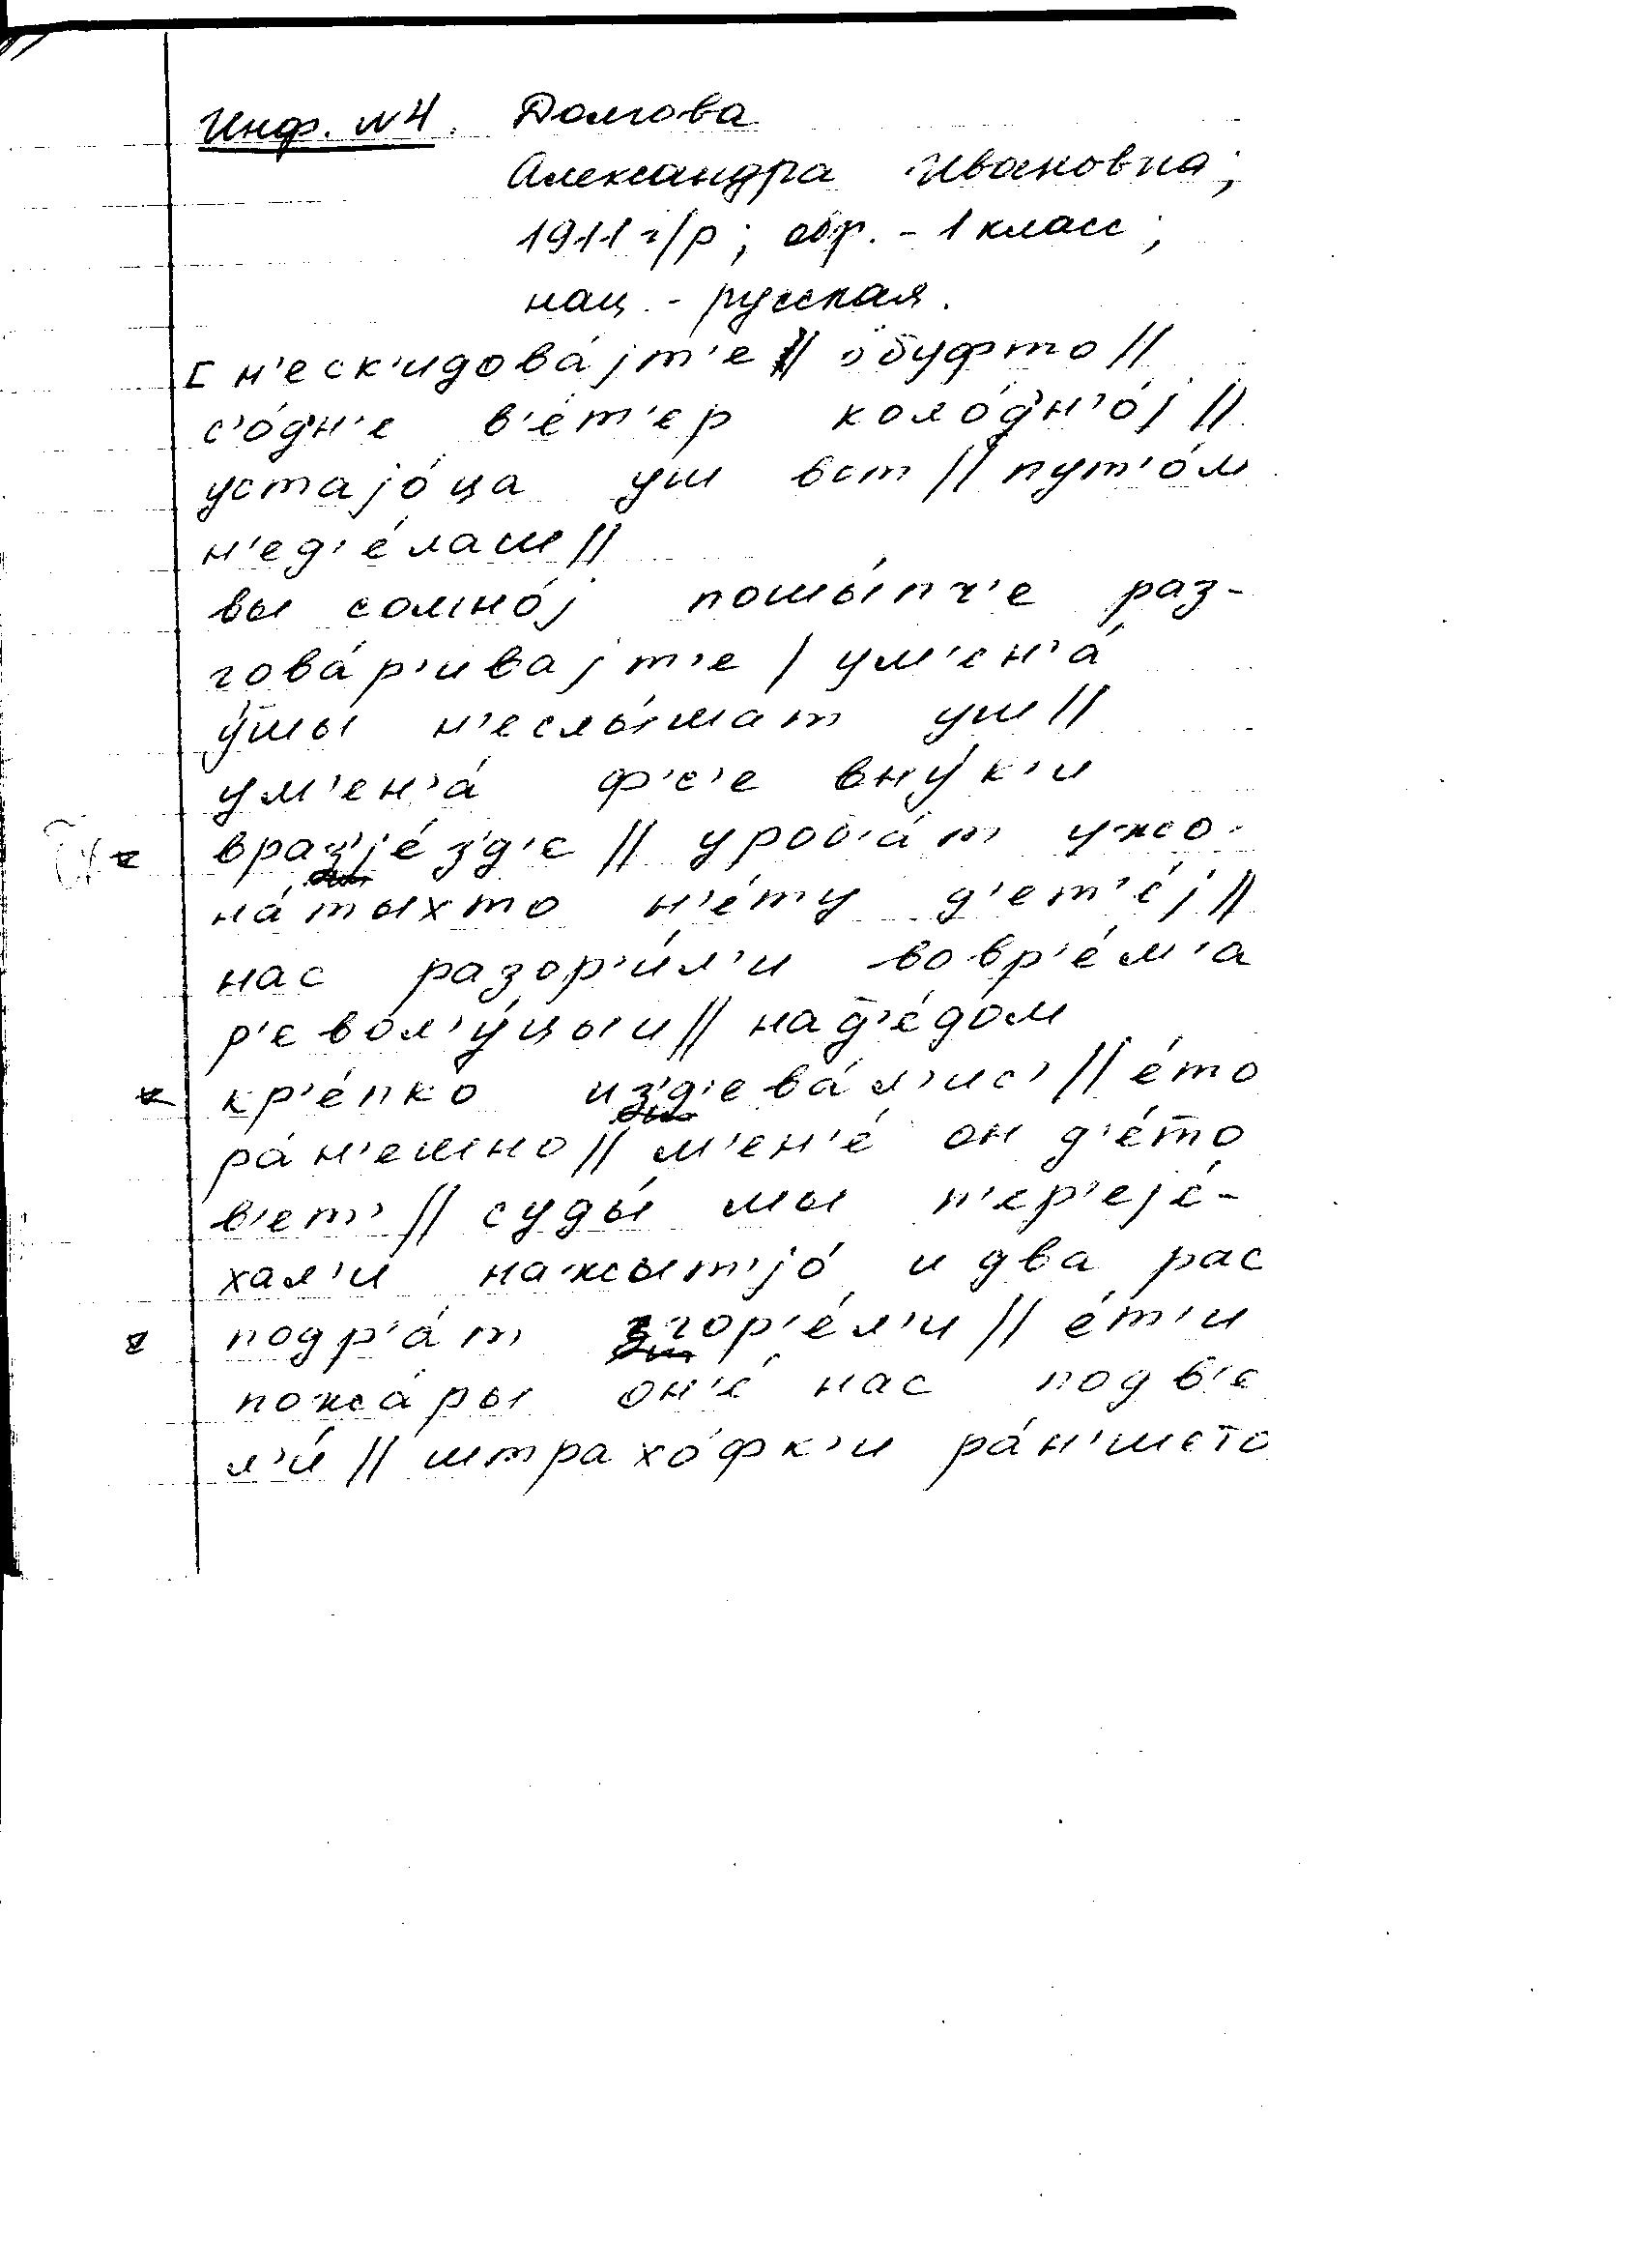 Инф. №4. Долгова
Александра Ивановна;
1911 г/р; обр. - 1 класс;
нац. - русская.
[н'еск'идова́јт'е // о̂буфто //
с'о́дн'е в'е́т'ер коло́дн'о́ј //
устајо́ца уш вот // пут'о́м
н'ед'е́лаш //
вы сомно́ј пошы́пч'е раз-
гова́р'ивајт'е / ум'ен'а́
у́шы н'еслы́шат уш //
ум'ен'а́ ф'с'е вну́к'и
враз'је́з'д'е // уроб'а́т ужо-
на́тыхто н'е́ту д'ет'е́ј //
нас разор'и́л'и вовр'е́м'а
р'евол'у́цыи // над'е́дом
кр'е́пко из'д'ева́л'ис' // е́то
ра́н'ешно // м'ен'е́ он д'е́то
в'ет' // суды́ мы п'ер'еје́-
хал'и нажыт'јо́ и два рас
подр'а́т згор'е́л'и // е́т'и
пожа́ры он'е́ нас подв'е
л'и́ // штрахо́фк'и ра́н'шето